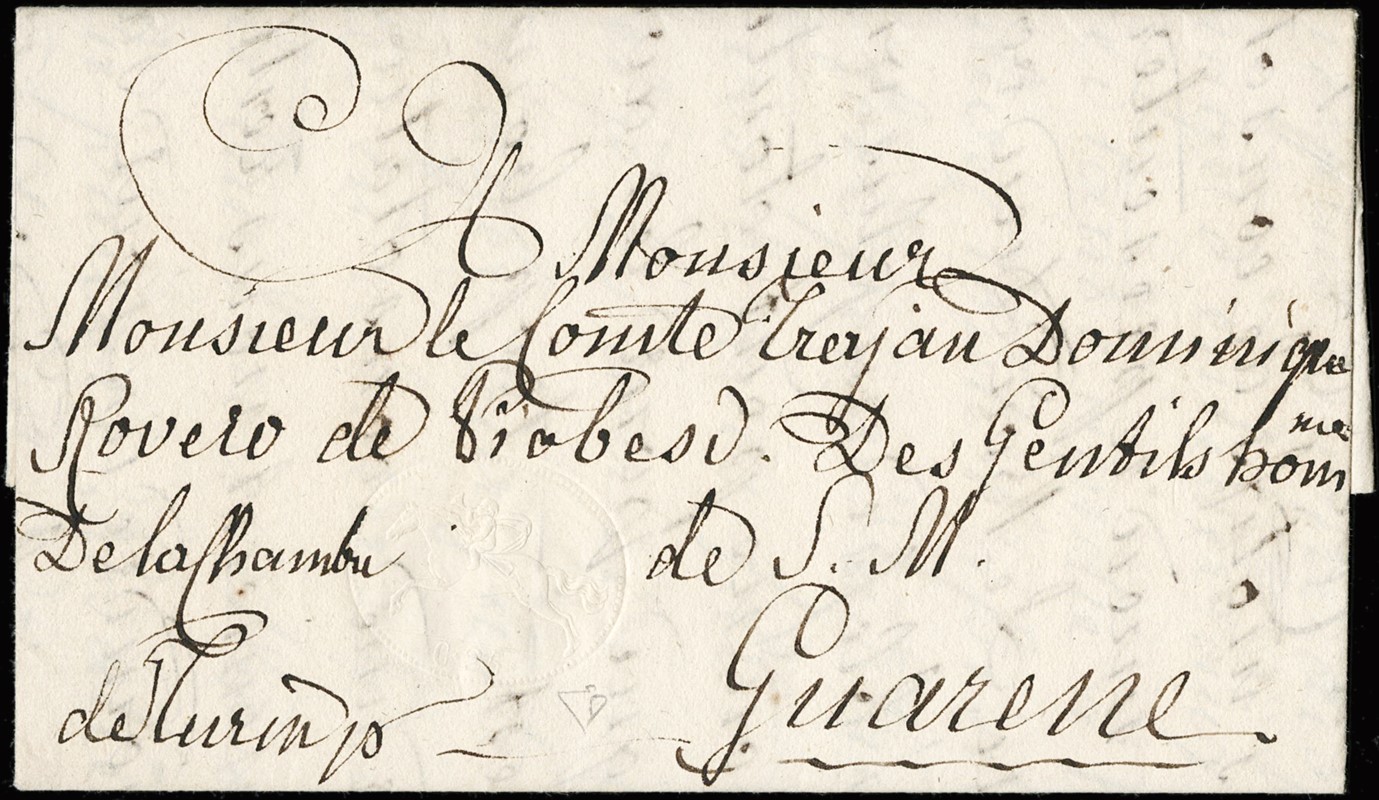 A Monsieur
Monsieur le Comte Trajan Dominique
Rovero de Piobesi. Des Gentils hom
mes
De la Chambre de S. M.
de Turin p Guarene